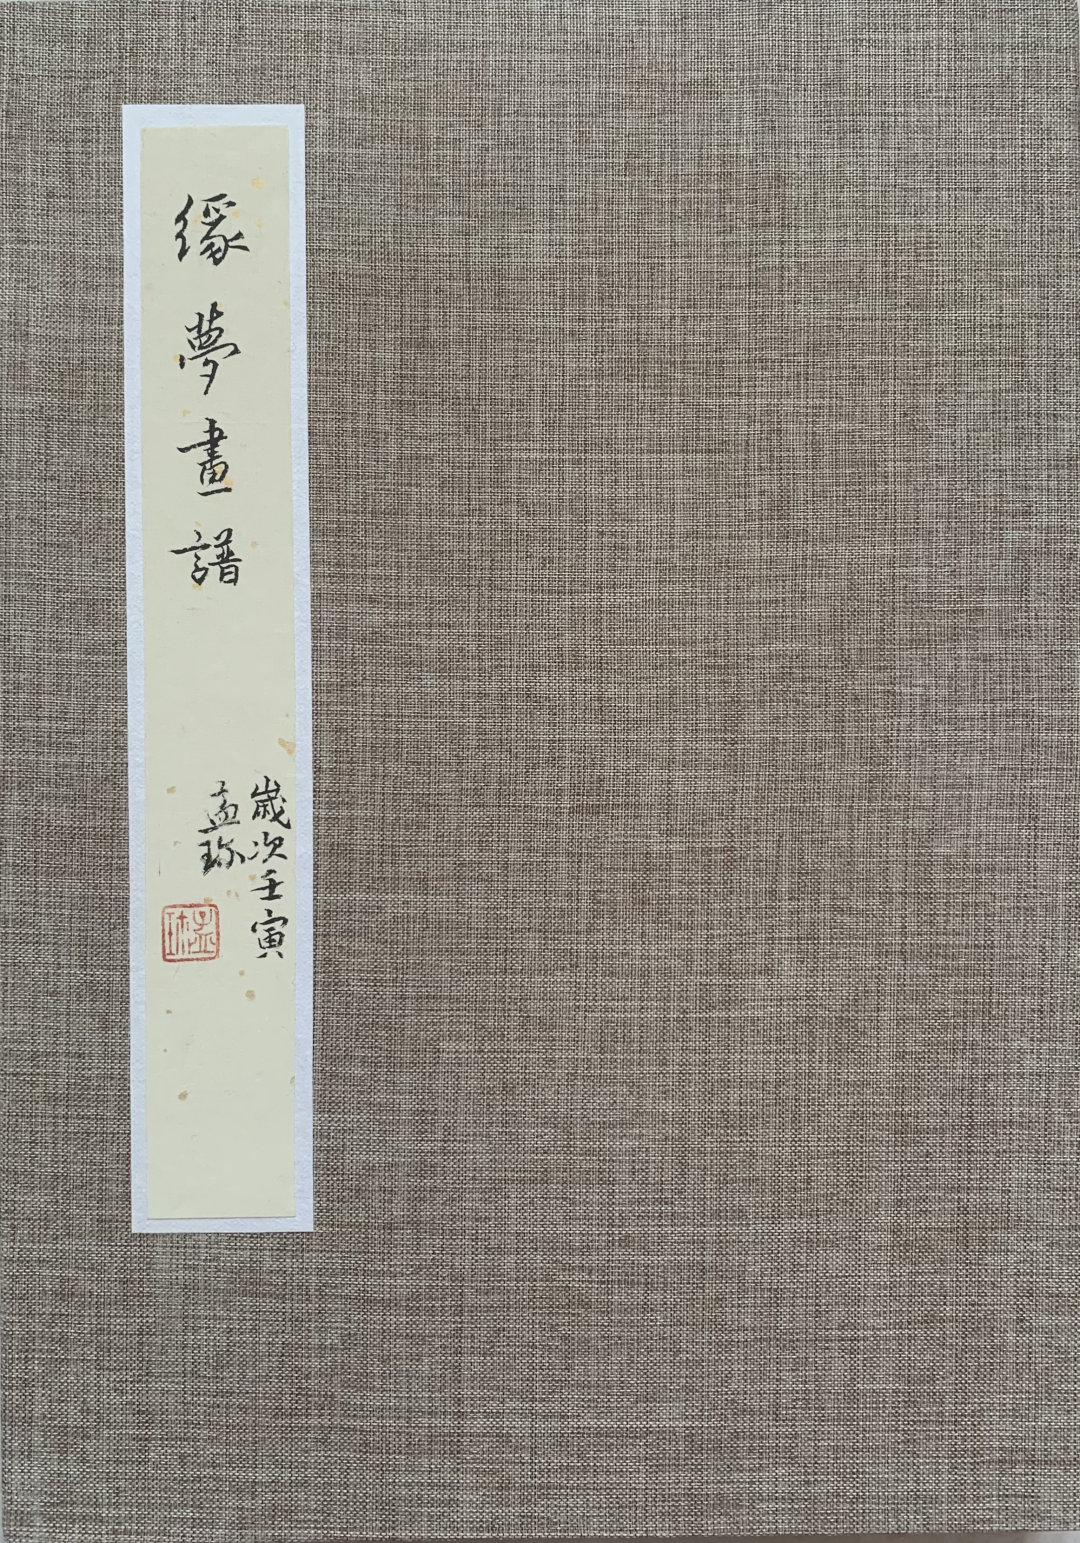 緣夢畫譜
歲次壬寅
孟琢